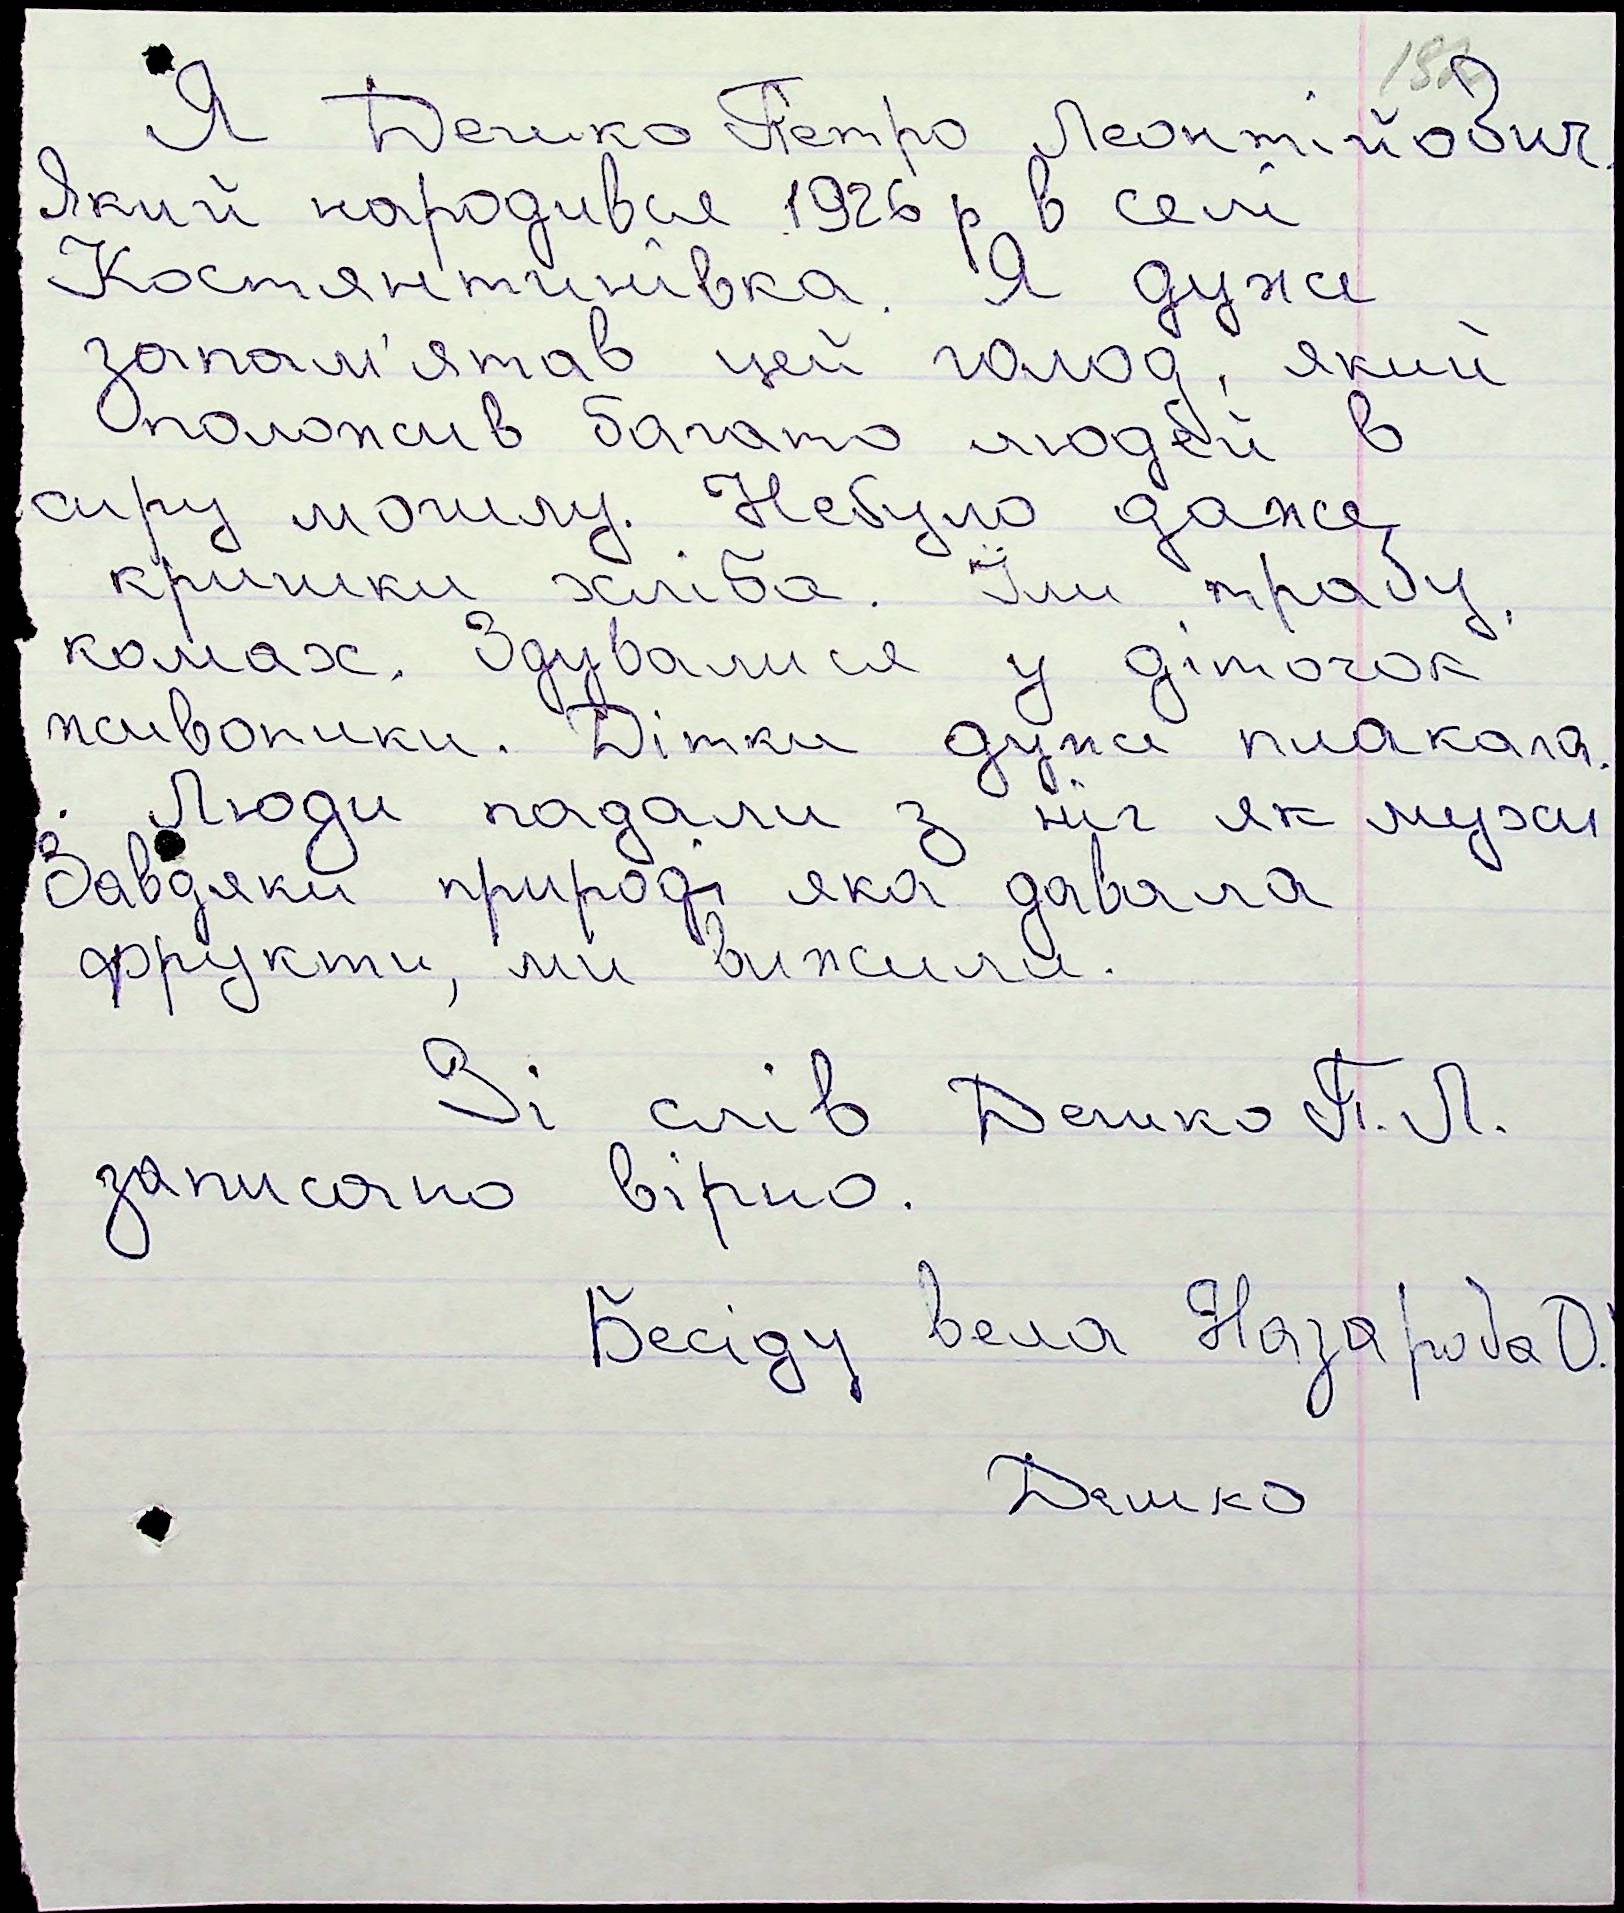 Я Дешко Петро Леонтійович.
Який народився 1926 р в селі
Костянтинівка. Я дуже
запам'ятав цей голод, який
положив багато людей в
сиру могилу. Небуло даже
кришки хліба. Їли траву,
комах. Здувалися у діточок
животики. Дітки дуже плакала.
Люди падали з ніг як мухи
Завдяки природі яка давала
фрукти, ми вижили.
Зі слів Дешко П. Л.
записано вірно.
Бесіду вела Назарова О.
Дешко